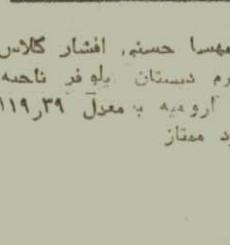 مهسا حسنی افشار کلاس
رم دبستان نیلوفر ناحیه
ارومیه با معدل ۱۱۹٫۳۹
د ممتاز